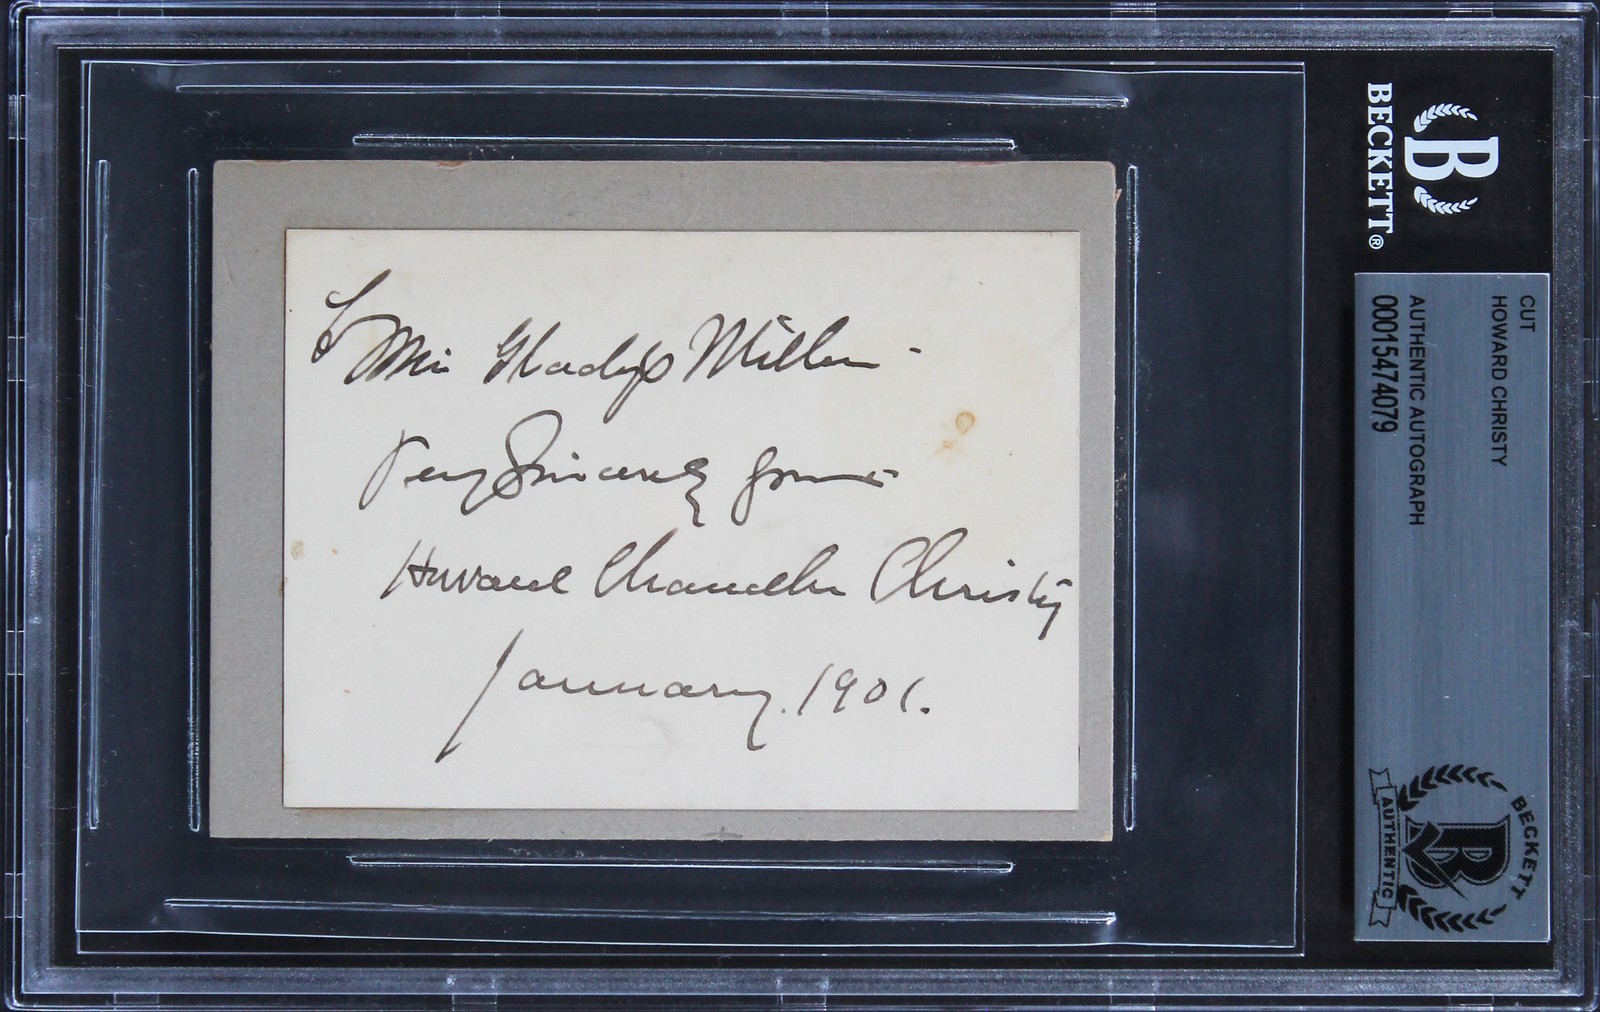 To Miss Gladys Miller -
Very Sincerely yours -
Howard Chandler Christy
January. 1901.
BECKETT®
B
CUT
HOWARD CHRISTY
AUTHENTIC AUTOGRAPH
00015474079
BECKETT
B
AUTHENTIC